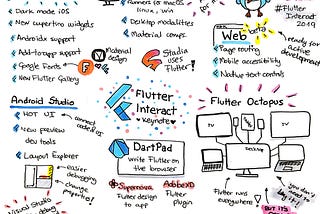 Dark mode iOS
New cupertino widgets
AndroidX support
Add-to-app support
Google Fonts
New Flutter Gallery
Desktop modalities
Material comps.
Material design
Stadia uses Flutter!
Web beta
Page routing
Mobile accessibility
Navbar text controls
ready for active development
#Flutter Interact 2019
Android Studio
HOT UI
New preview dev tools
Layout Explorer
easier debugging
change properties!
Visual Studio debug
Flutter Interact
*keynote*
DartPad
Write Flutter on the browser
Supernova
Flutter design to app
AdobeXD
Flutter plugin
Flutter Octopus
TV
TV
Desktop
Flutter runs everywhere!
you don't
BUT IT'S